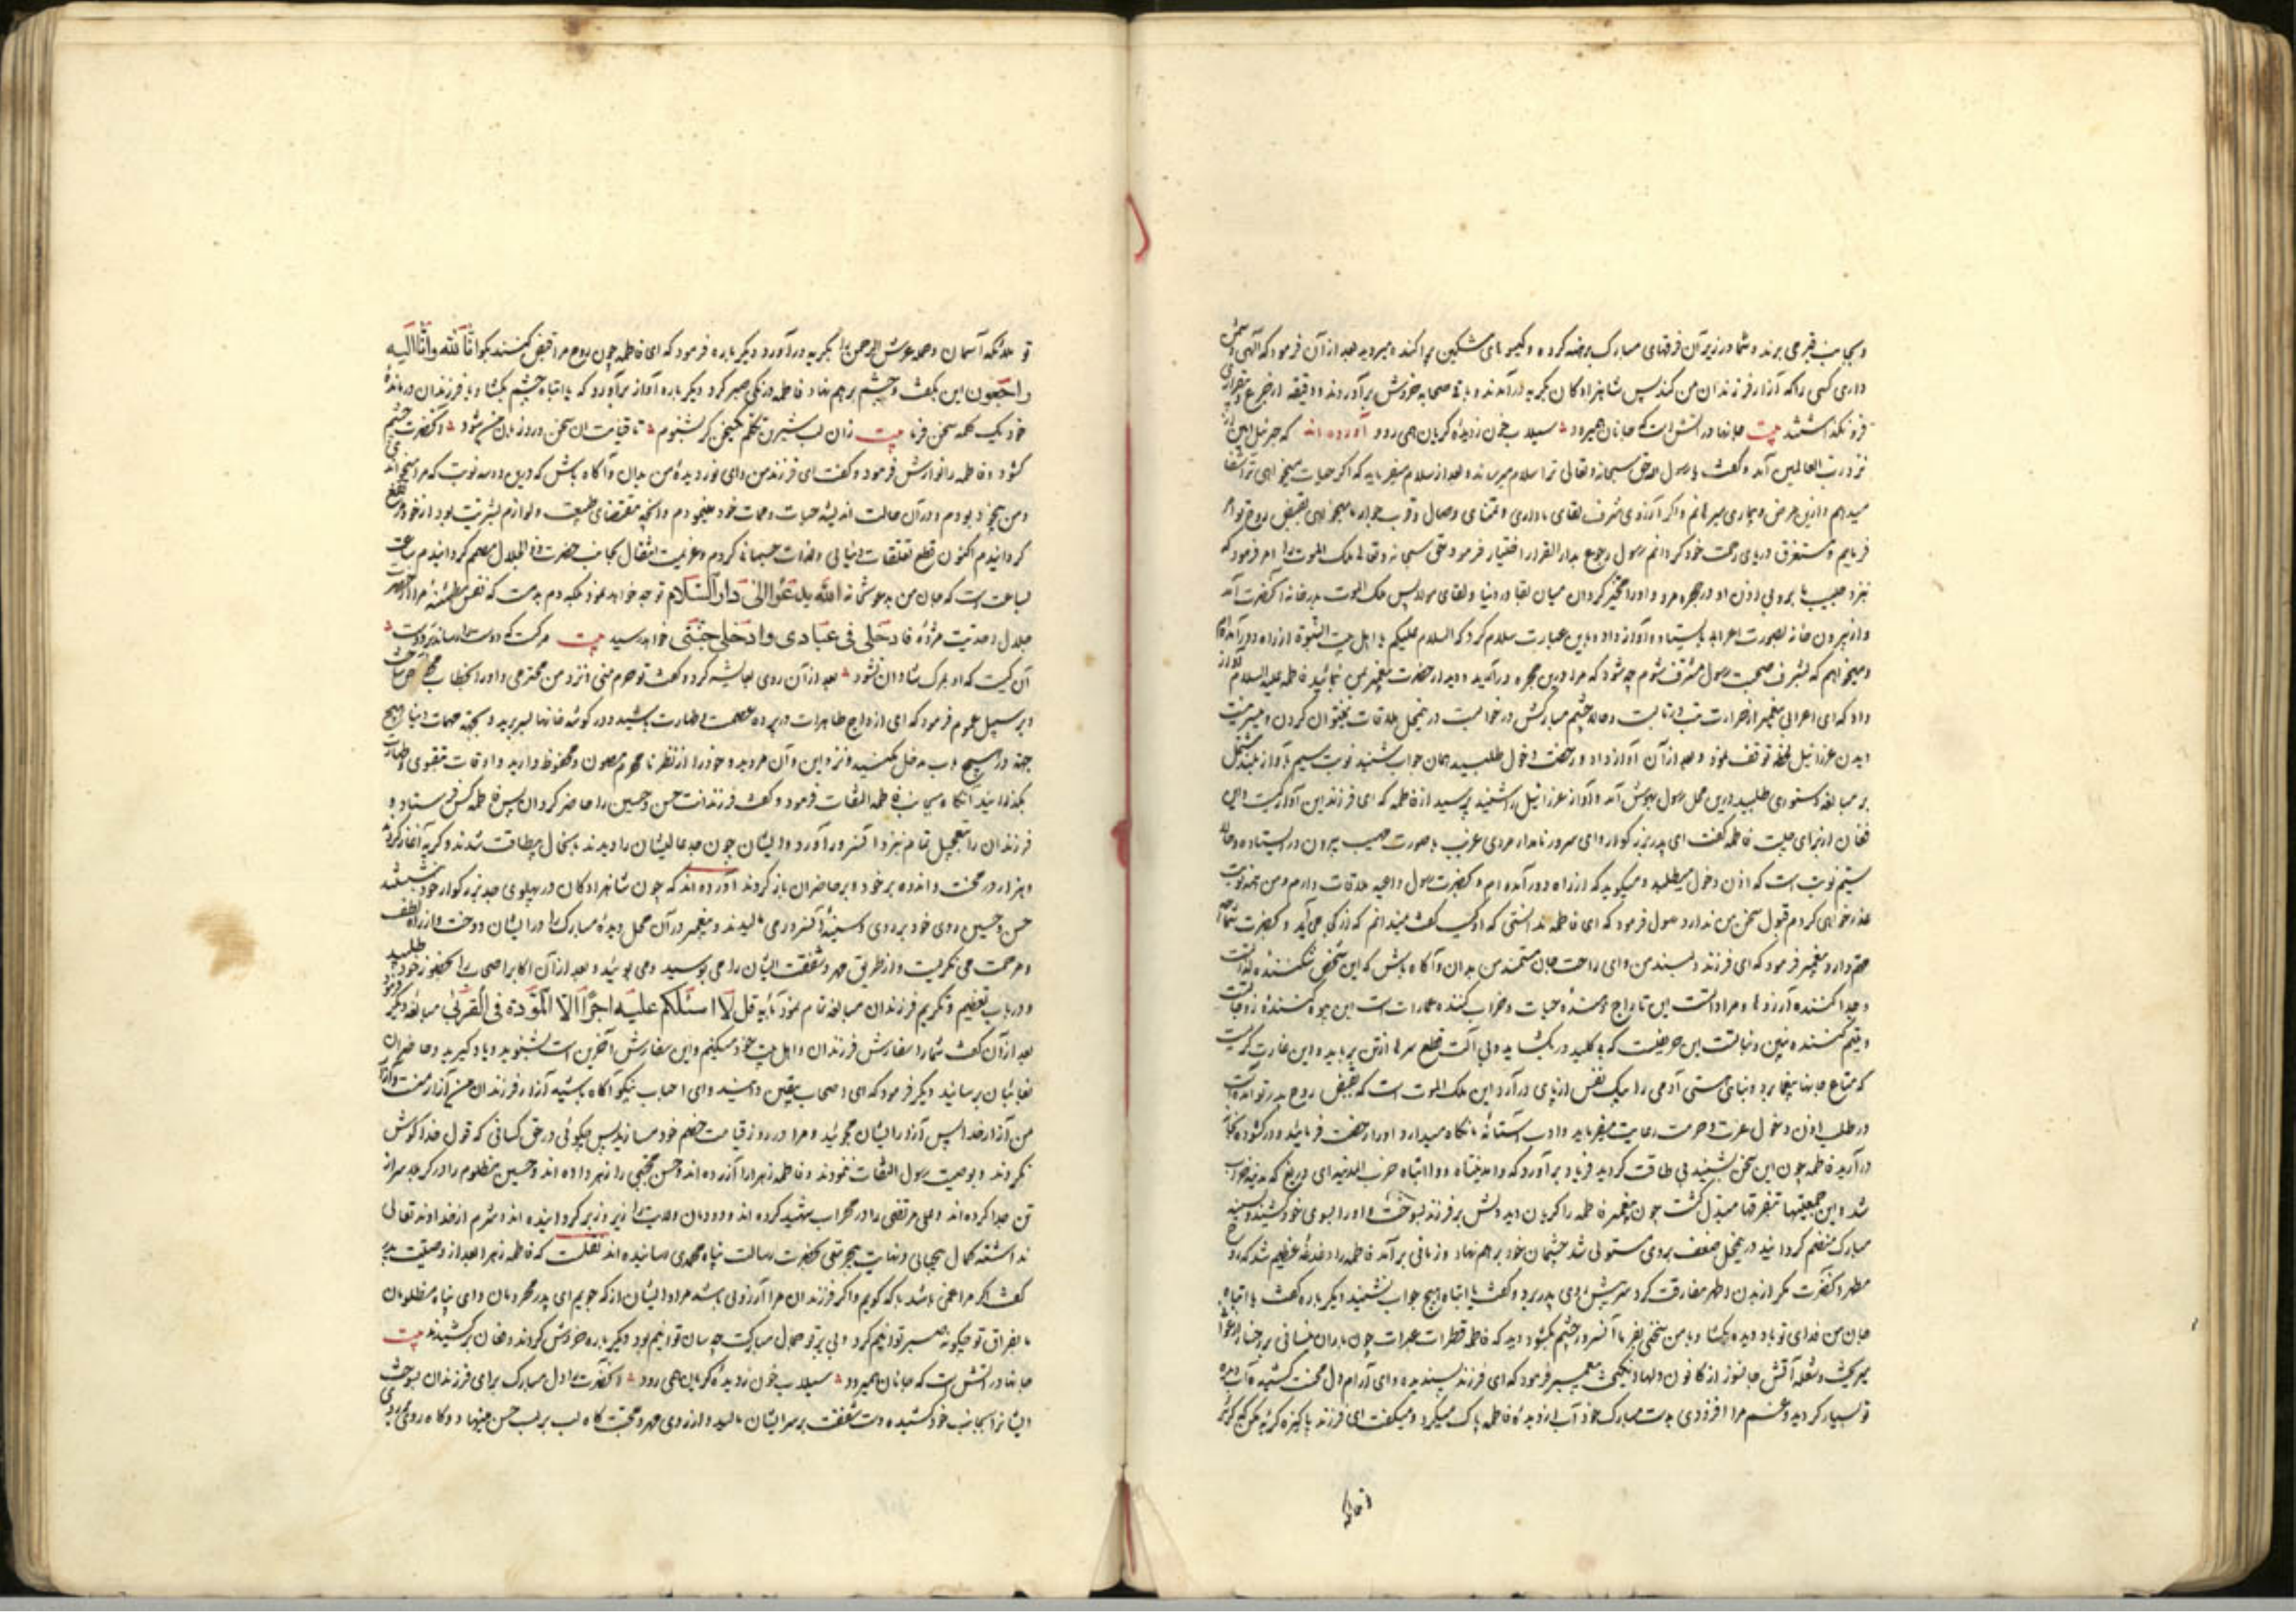 و بجانب قبر می برند و شما در زیر آن فرقهای مبارک برهنه کرده و گیسوهای مشکین پراکنده میروید بعد از آن فرمود که الهی دشمن
داری کسی را که آزار فرزندان من کند پس شاهزادگان بگریه درآمدند و باقی صحابه خروش برآوردند و دقیقه از جزع و
فرونگذاشتند بیت جانها در آتش است که جانان همیرود سیلاب خون ز دیده گریان همی رود آورده اند که جبرئیل امین
نزد رب العالمین آمد و گفت یا رسول الله حق سبحانه و تعالی ترا سلام میرساند و بعد از سلام میفرماید که اگر حیات میخواهی ترا شفا
میدهم و ازین مرض و بیماری میرهانم و اگر آرزوی شرف لقای ما داری و تمنای وصال و قرب جوار ما میخواهی بقبض روح تو امر
فرمایم و مستغرق دریای رحمت خود گردانم رسول رجوع بدار القرار اختیار فرمود حق سبحانه و تعالی ملک الموت را امر فرمود که
بنزد حبیب ما برو بی اذن او در حجره مرو و او را مخیر گردان میان بقا در دنیا و لقای مولا پس ملک الموت بدر خانه آنحضرت آمد
و از بیرون خانه بصورت اعرابی بایستاد و آواز داد و باین عبارت سلام کرد که السلام علیکم یا اهل بیت النبوة از راه دور آمده ام
و میخواهم که بشرف صحبت رسول مشرف شوم چه شود که مرا درین حجره درآرید و دیدار حضرت پیغمبر بمن نمائید فاطمه علیه السلام آواز
داد که ای اعرابی پیغمبر از حرارت تب در تابست و حالا چشم مبارکش در خوابست در این محل ملاقات نمیتوان کردن و میسر نیست
دیدن عزرائیل لحظه توقف نمود و بعد از آن آواز داد و رخصت دخول طلبید همان جواب شنید نوبت سیم بآواز بلند مشتمل
بر مبالغه دستوری طلبید درین محل رسول بهوش آمد و آواز عزرائیل را شنید پرسید از فاطمه که ای فرزند این آواز کیست و این
فغان از برای چیست فاطمه گفت ای پدر بزرگوار و ای سرور نامدار مردی غریب با صورت مهیب بیرون در ایستاده و حالا
سیم نوبت است که اذن دخول میطلبد و میگوید که از راه دور آمده ام و بحضرت رسول داعیه ملاقات دارم و من چند نوبت
عذرخواهی کردم قبول سخن من ندارد رسول فرمود که ای فاطمه ندانستی که او کیست گفت نمیدانم که از کجا می آید و بحضرت شما چه
مهم دارد پیغمبر فرمود که ای فرزند دلبند من و ای راحت جان مستمند من بدان و آگاه باش که این شخص شکننده لذاتست
و جدا کننده آرزوها و مراداتست این تاراج دهنده حیات و خراب کننده عمارات است این بیوه کننده زوجاتست
و یتیم کننده بنین و بناتست این حریفیست که بی کلید در بگشاید و بی آلت قطع سرها از تن برباید و این غارت گریست
که متاع جانها بیغما برد و بنای هستی آدمی را بیک نفس از پای درآرد این ملک الموت است که بقبض روح پدر تو آمده است
در طلب اذن دخول عزت و حرمت رعایت میفرماید و ادب آستانه ما نگاه میدارد او را رخصت فرمائید و در گشوده بخانه
درآرید فاطمه چون این سخن بشنید بی طاقت گردید فریاد برآورد که وامدینتاه و وا ابتاه خرب المدینه ای دریغ که مدینه خراب
شد و این جمعیتها بتفرقها مبدل گشت چون پیغمبر فاطمه را گریان دید دلش بر فرزند بسوخت و او را بسوی خود کشید و بسینه
مبارک منضم گردانید درین محل ضعف بروی مستولی شد چشمان خود برهم نهاد و زمانی برآمد فاطمه را دغدغه عظیم شد که روح
مطهر آنحضرت مگر از بدن اطهر مفارقت کرد سر پیش روی پدر برد و گفت یا ابتاه هیچ جواب نشنید دیگر باره گفت یا ابتاه
جان من فدای تو باد دیده بگشا و با من سخنی بفرما آنسرور چشم بگشود دید که فاطمه قطرات عبرات چون باران نیسانی بر رخسار
میریخت و شعله آتش جانسوز از کانون دلها می انگیخت پیغمبر فرمود که ای فرزند پسندیده و ای آرام دل محنت کشیده آب دیده
تو بسیار گردید و غم مرا افزودی بدست مبارک خود آب از دیده فاطمه پاک میکرد و میگفت ای فرزند پاکیزه گریه مکن که از گریه
تو ملائکه آسمان و حمله عرش الرحمن را بگریه درآورد دیگر باره فرمود که ای فاطمه چون روح مرا قبض کنند بگو انا لله و انا الیه
راجعون این بگفت و چشم برهم نهاد فاطمه زمانی صبر کرد دیگر باره آواز برآورد که یا ابتاه چشم بگشا و با فرزندان درمانده
خود یک کلمه سخن فرما بیت زان لب شیرین تکلم یک سخن گر بشنوم تا قیامت آن سخن ورد زبان من شود آنحضرت چشم
گشود و فاطمه را نوازش فرمود و گفت ای فرزند من و ای نور دیده من بدان و آگاه باش که درین دو سه نوبت که مرا میخواندی
و من بیخود بودم و در آن حالت اندیشه حیات و ممات خود مینمودم و آنچه مقتضای طبیعت و لوازم بشریت بود از خود رفع
گردانیدم اکنون قطع تعلقات دنیائی و لذات جسمانی کردم و عزیمت انتقال بجانب حضرت ذو الجلال مصمم گردانیدم ساعت
بساعت است که جان من بدعوتخانه الله یدعوا الی دار السلام توجه خواهد نمود و دمبدم است که نفس مطمئنه مرا از حضرت
جلال احدیت مژده فادخلی فی عبادی وادخلی جنتی خواهد رسید بیت مرگست که دوست را رساند بر دوست
آن کیست که او بمرگ شادان نشود بعد از آن روی بعایشه کرد و گفت تو حرم منی و نزد من محترمی و او را بخطاب
و بر سبیل عموم فرمود که ای ازواج طاهرات در پرده عصمت و طهارت باشید و در گوشه خانها بسر برید و بجهة مهمات دنیا بهیچ
جهة در هیچ باب مدخل مکنید و نزد این و آن مروید و خود را از نظر نامحرم مصون و محفوظ دارید و اوقات بتقوی و طهارت
بگذرانید آنگاه بجانب فاطمه التفات فرمود و گفت فرزندانت حسن و حسین را حاضر گردان پس فاطمه کس فرستاد و
فرزندان را بتعجیل تمام بنزد آنسرور آورد و ایشان چون جد عالیشان را دیدند باینحال بیطاقت شدند و گریه آغاز کردند
و هزار در محنت و اندوه بر خود و بر حاضران باز کردند آورده اند که چون شاهزادگان در پهلوی جد بزرگوار خود نشستند
حسن و حسین روی خود بر روی و سینه آنسرور می مالیدند و پیغمبر در آن محل دیده مبارک را در ایشان دوخت و از راه لطف
و مرحمت می نگریست و از طریق مهر و شفقت ایشان را می بوسید و می بوئید و بعد از آن اکابر اصحاب را بحضور خود طلبید
و در باب تعظیم و تکریم فرزندان مبالغه تمام نمود بآیه قل لا اسئلکم علیه اجرا الا المودة فی القربی مبالغه دیگر فرمود
بعد از آن گفت شما را سفارش فرزندان و اهل بیت خود میکنم و این سفارش آخرین است بشنوید و یاد گیرید و حاضران
بغائبان برسانید دیگر فرمود که ای اصحاب یقین دانید و ای احباب نیکو آگاه باشید آزار فرزندان من آزار منست و آزار
من آزار خدا پس آزار ایشان مجوئید و مرا در روز قیامت خصم خود مسازید پس چگوئی در حق کسانی که قول خدا گوش
نکردند و بوصیت رسول التفات ننمودند و فاطمه زهرا را آزرده اند و حسن مجتبی را زهر داده اند و حسین مظلوم را در کربلا سر از
تن جدا کرده اند و علی مرتضی را در محراب شهید کرده اند و دودمان ولایت را زیر و زبر گردانیده اند و شرم از خداوند تعالی
نداشته کمال بیحیائی و نهایت بیحرمتی بحضرت رسالت پناه محمدی رسانیده اند نقلست که فاطمه زهرا بعد از وصیت پدر
گفت اگر مرا غمی باشد با که گویم و اگر فرزندان مرا آرزوئی باشد مراد ایشان از که جویم ای پدر محرومان و ای پناه مظلومان
ما بفراق تو چگونه صبر توانیم کرد و بی پرتو جمال مبارکت چه سان توانیم بود دیگر باره خروش کردند و فغان برکشیدند بیت
جانها در آتش است که جانان همیرود سیلاب خون ز دیده گریان همی رود آنحضرت را دل مبارک برای فرزندان بسوخت
ایشانرا بجانب خود کشیده دست شفقت بر سر ایشان مالید و از روی مهر و محبت گاه لب بر لب حسن مینهاد و گاه روی بر روی